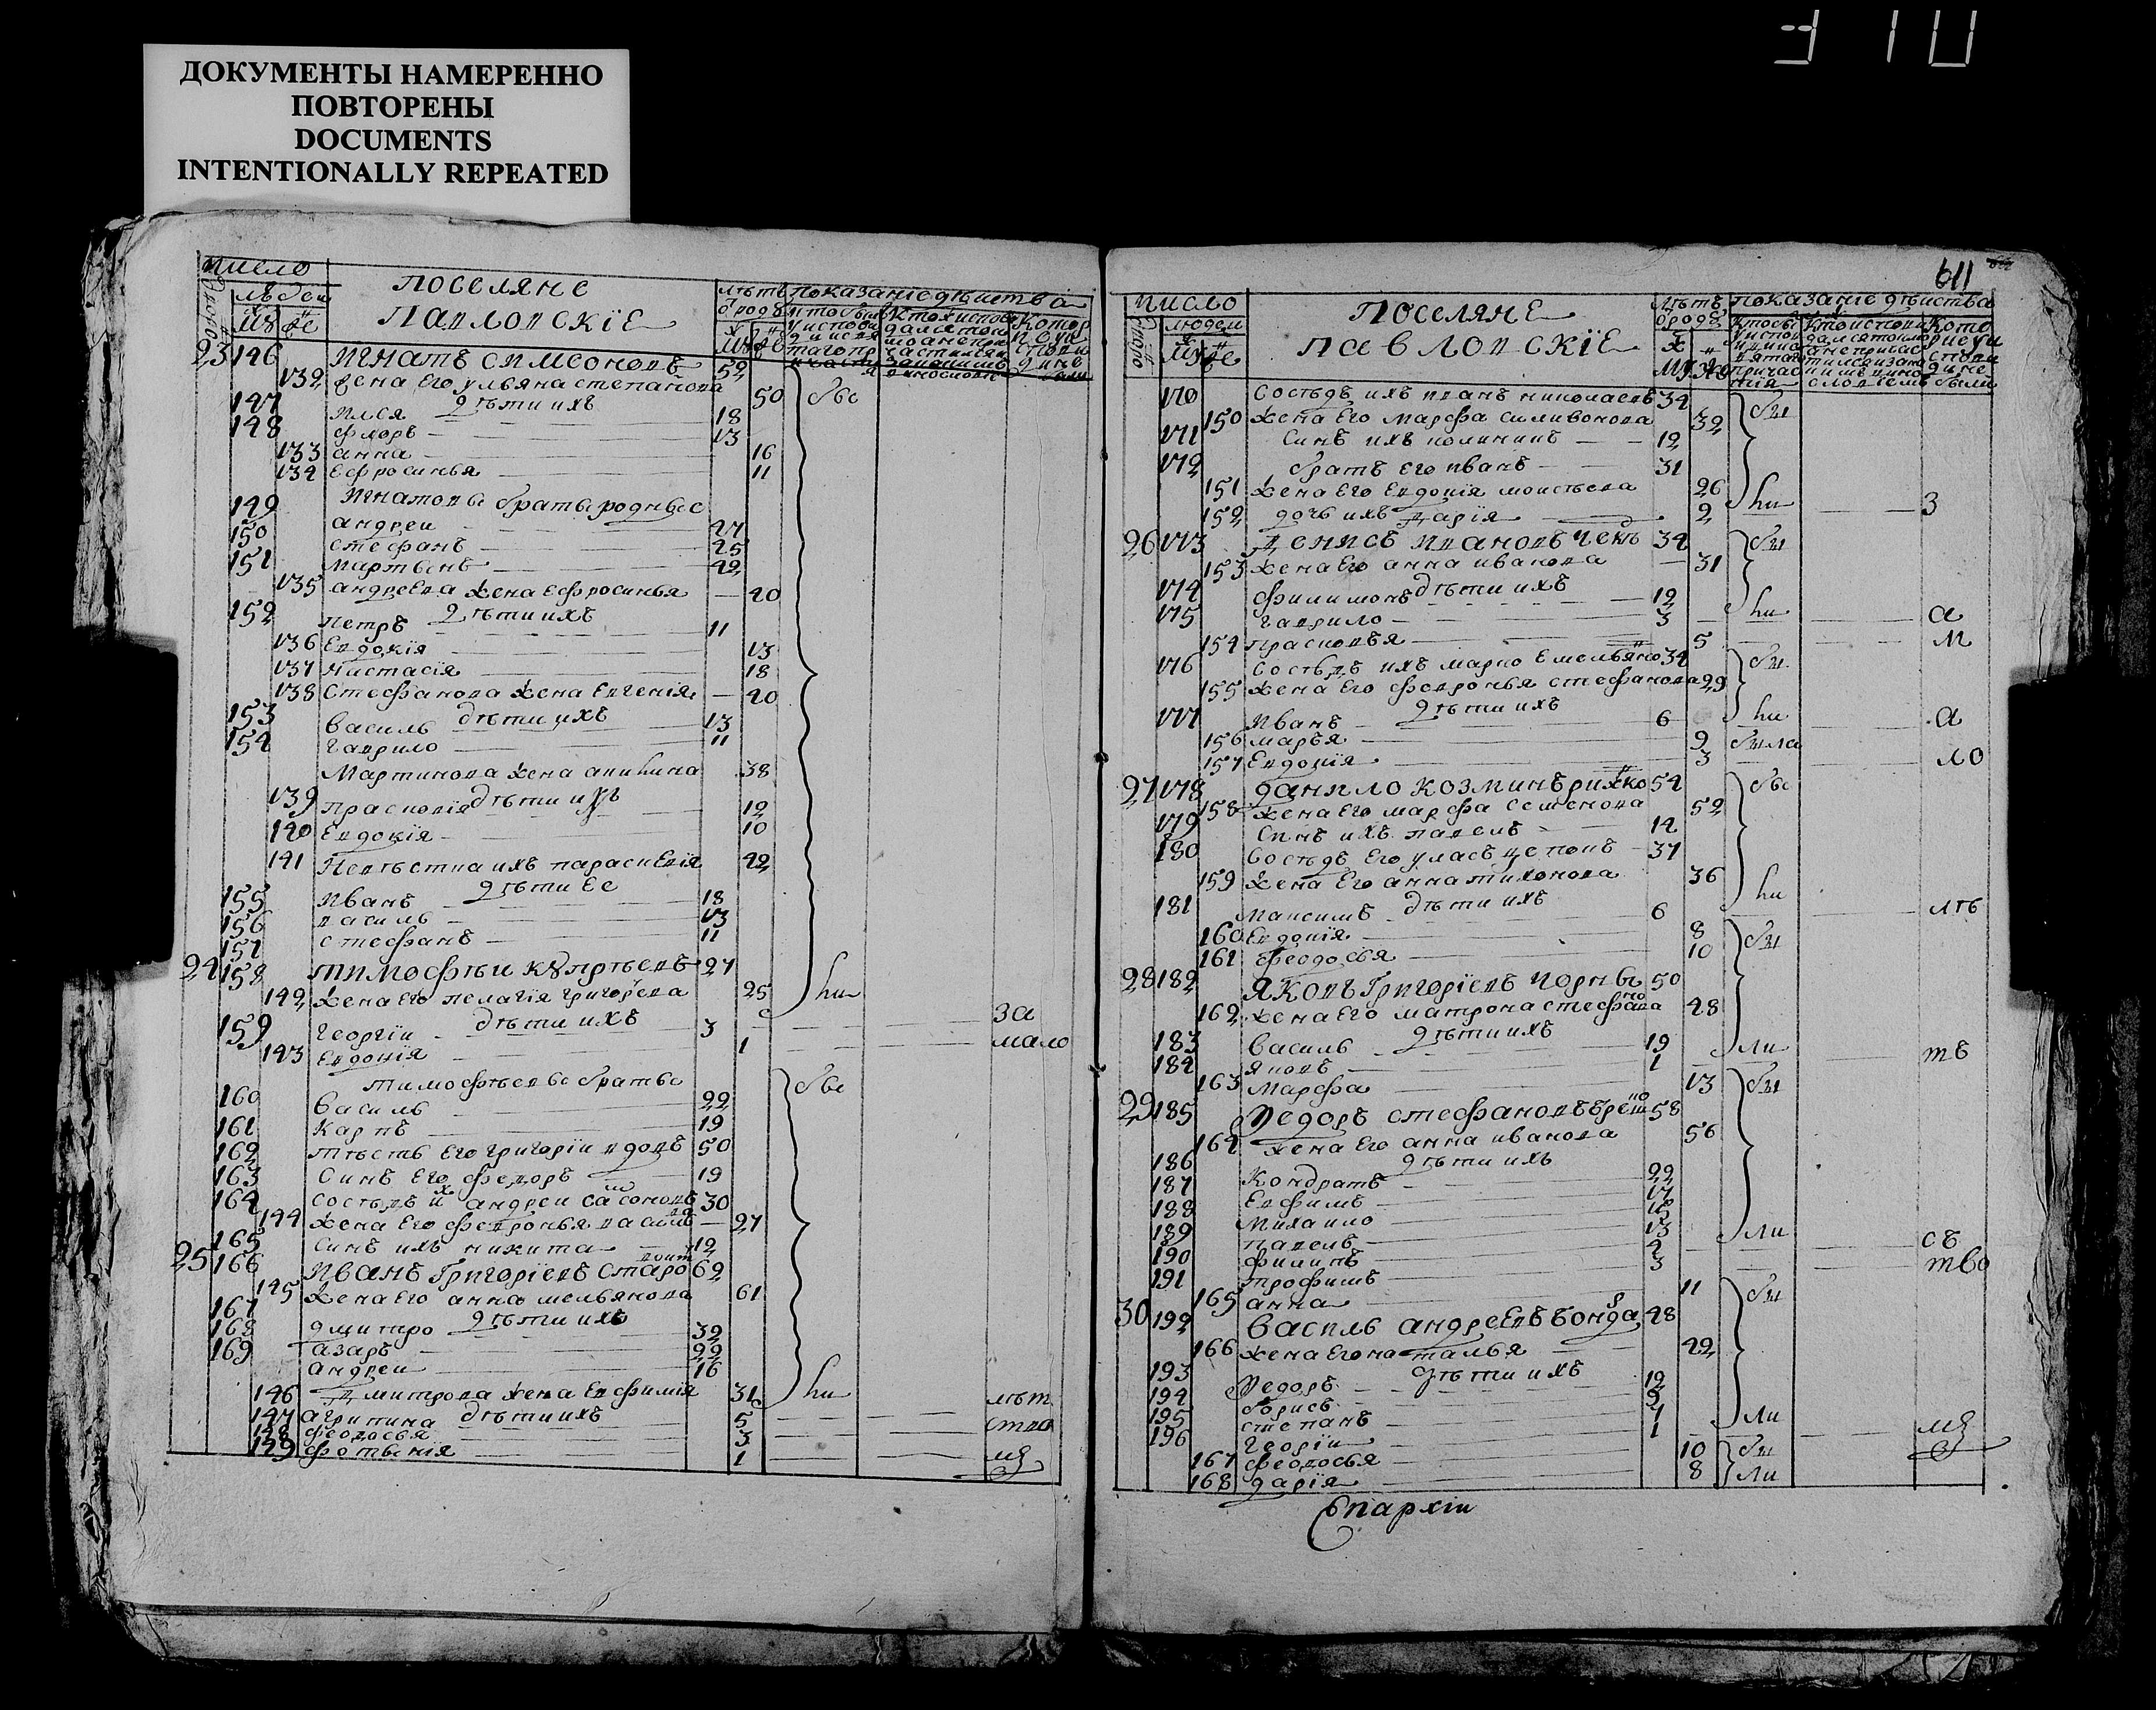 ДОКУМЕНТЫ НАМЕРЕННО
ПОВТОРЕНЫ
DOCUMENTS
INTENTIONALLY REPEATED
число
людеи
поселяне
павловскїе
показанїе дѣиства
23 146 игнатъ симеоновъ 52
132 жена его ульяна степанова 50 бы
дѣти ихъ
147 илея 18
148 флоръ 13
133 анна 16
134 ефросинья 11
игнатовы браты родные
149 андреи 47
150 стефанъ 45
151 мартынъ 42
135 андреева жена ефросинья 40
дѣти ихъ
152 петръ 11
136 евдокїя 13
137 настасїя 18
138 стефанова жена евгенїя 40
дѣти ихъ
153 василь 13
154 гаврило 11
мартинова жена акилина 38
дѣти ихъ
139 прасковїя 12
140 евдокїя 10
141 невѣстка ихъ параскевїя 42
дѣти ее
155 иванъ 18
156 василь 13
157 стефанъ 11
24 158 тимофѣи купрѣевъ 27
142 жена его пелагїя григорева 25 ли
за
дѣти ихъ
159 георгїи 3 мало
143 евдокїя 1
тимофѣевы браты
160 василь 22 бы
161 карпъ 19
162 тѣсть его григорїи вдовъ 50
163 синъ его федоръ 19
164 сосѣдъ их андреи 30
144 жена его февронья 27
165 синъ ихъ никита 12
25 166 иванъ григорїевъ 62
145 жена его анна мельянова 61
дѣти ихъ
167 дмитро 32
168 азаръ 22
169 андреи 16
146 дмитрова жена евфимїя 31 ли лѣт
дѣти ихъ
147 агрипина 5 ства
148 феодосья 3
149 фотынїя 1
611
число
людеи
поселяне
павловскїе
показанїе дѣиства
170 сосѣдъ ихъ иванъ николаевъ 34 бы
150 жена его марфа силивонова 32
171 синъ ихъ калиникъ 12
172 братъ его иванъ 31
151 жена его евдокїя моисѣева 26
152 дочъ ихъ дарїя 2 ли з
26 173 денисъ ивановъ 34 бы
153 жена его анна иванова 31
дѣти ихъ
174 филимонъ 12
175 гаврило 3 ли а
154 прасковѣя 5 м
176 сосѣдъ ихъ марко емельяно 34 бы
155 жена его февронья стефанова 29
дѣти ихъ
177 иванъ 6 ли а
156 марья 9 была
157 евдокїя 3 ло
27 178 данило козминъ рижко 54 бы
158 жена его марфа семенова 52
179 синъ ихъ павелъ 14
180 сосѣдъ его уласъ цепокъ 37
159 жена его анна тихонова 36
дѣти ихъ
181 максимъ 6 ли лѣ
160 евдокїя 8 бы
161 феодосья 10
28 182 яковъ григорїевъ чорны 50
162 жена его матрона стефанова 48
дѣти ихъ
183 василь 19
184 яковъ 1 ли тъ
163 марфа 13 бы
29 185 федоръ стефановъ 58
164 жена его анна иванова 56
дѣти ихъ
186 кондратъ 22
187 евфимъ 17
188 михаило
189 павелъ 13 ли съ
190 филипъ 4 тво
191 трофимъ 3
165 анна 11 бы
30 192 василь андреевъ бондар 48
166 жена его наталья 42
дѣти ихъ
193 федоръ 12
194 борисъ
195 степанъ 1 ли
196 георгїи 1
167 феодосья 10 бы
168 дарїя 8 ли
Епархїи